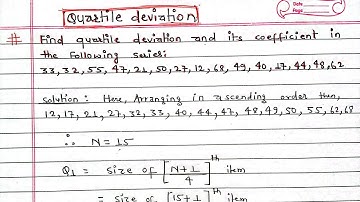 Date
Page
Quartile deviation
# Find quartile deviation and its coefficient in
the following series:
33, 32, 55, 47, 21, 50, 27, 12, 68, 49, 40, 17, 44, 48, 62
Solution: Here, Arranging in ascending order then,
12, 17, 21, 27, 32, 33, 40, 44, 47, 48, 49, 50, 55, 62, 68
∴ N = 15
Q₁ = size of [N+1/4]th item
= size of [15+1